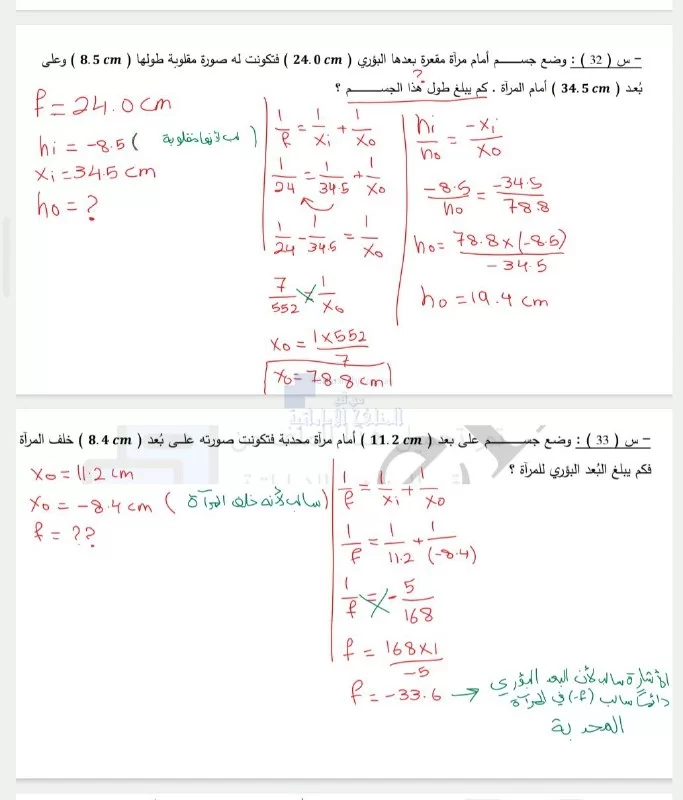 – س ( 32 ) : وضع جسم أمام مرآة مقعرة بعدها البؤري ( 24.0 cm ) فتكونت له صورة مقلوبة طولها ( 8.5 cm ) وعلى
بُعد ( 34.5 cm ) أمام المرآة . كم يبلغ طول هذا الجسم ؟
?
f = 24.0 cm
hi = -8.5 ( لأنها مقلوبة )
xi = 34.5 cm
ho = ?
1/f = 1/xi + 1/xo
1/24 = 1/34.5 + 1/xo
1/24 - 1/34.5 = 1/xo
7/552 = 1/xo
xo = 1x552/7
xo = 78.8 cm
hi/ho = -xi/xo
-8.5/ho = -34.5/78.8
ho = 78.8x(-8.5)/-34.5
ho = 19.4 cm
موقع
المناهج الإماراتية
– س ( 33 ) : وضع جسم على بعد ( 11.2 cm ) أمام مرآة محدبة فتكونت صورته على بُعد ( 8.4 cm ) خلف المرآة
فكم يبلغ البُعد البؤري للمرآة ؟
xo = 11.2 cm
xo = -8.4 cm ( سالب لأنه خلف المرآة )
f = ??
1/f = 1/xi + 1/xo
1/f = 1/11.2 + 1/(-8.4)
1/f = -5/168
f = 168x1/-5
f = -33.6 →
الأشارة سالب لأن البعد البؤري
دائماً سالب (-f) في المرآة
المحدبة